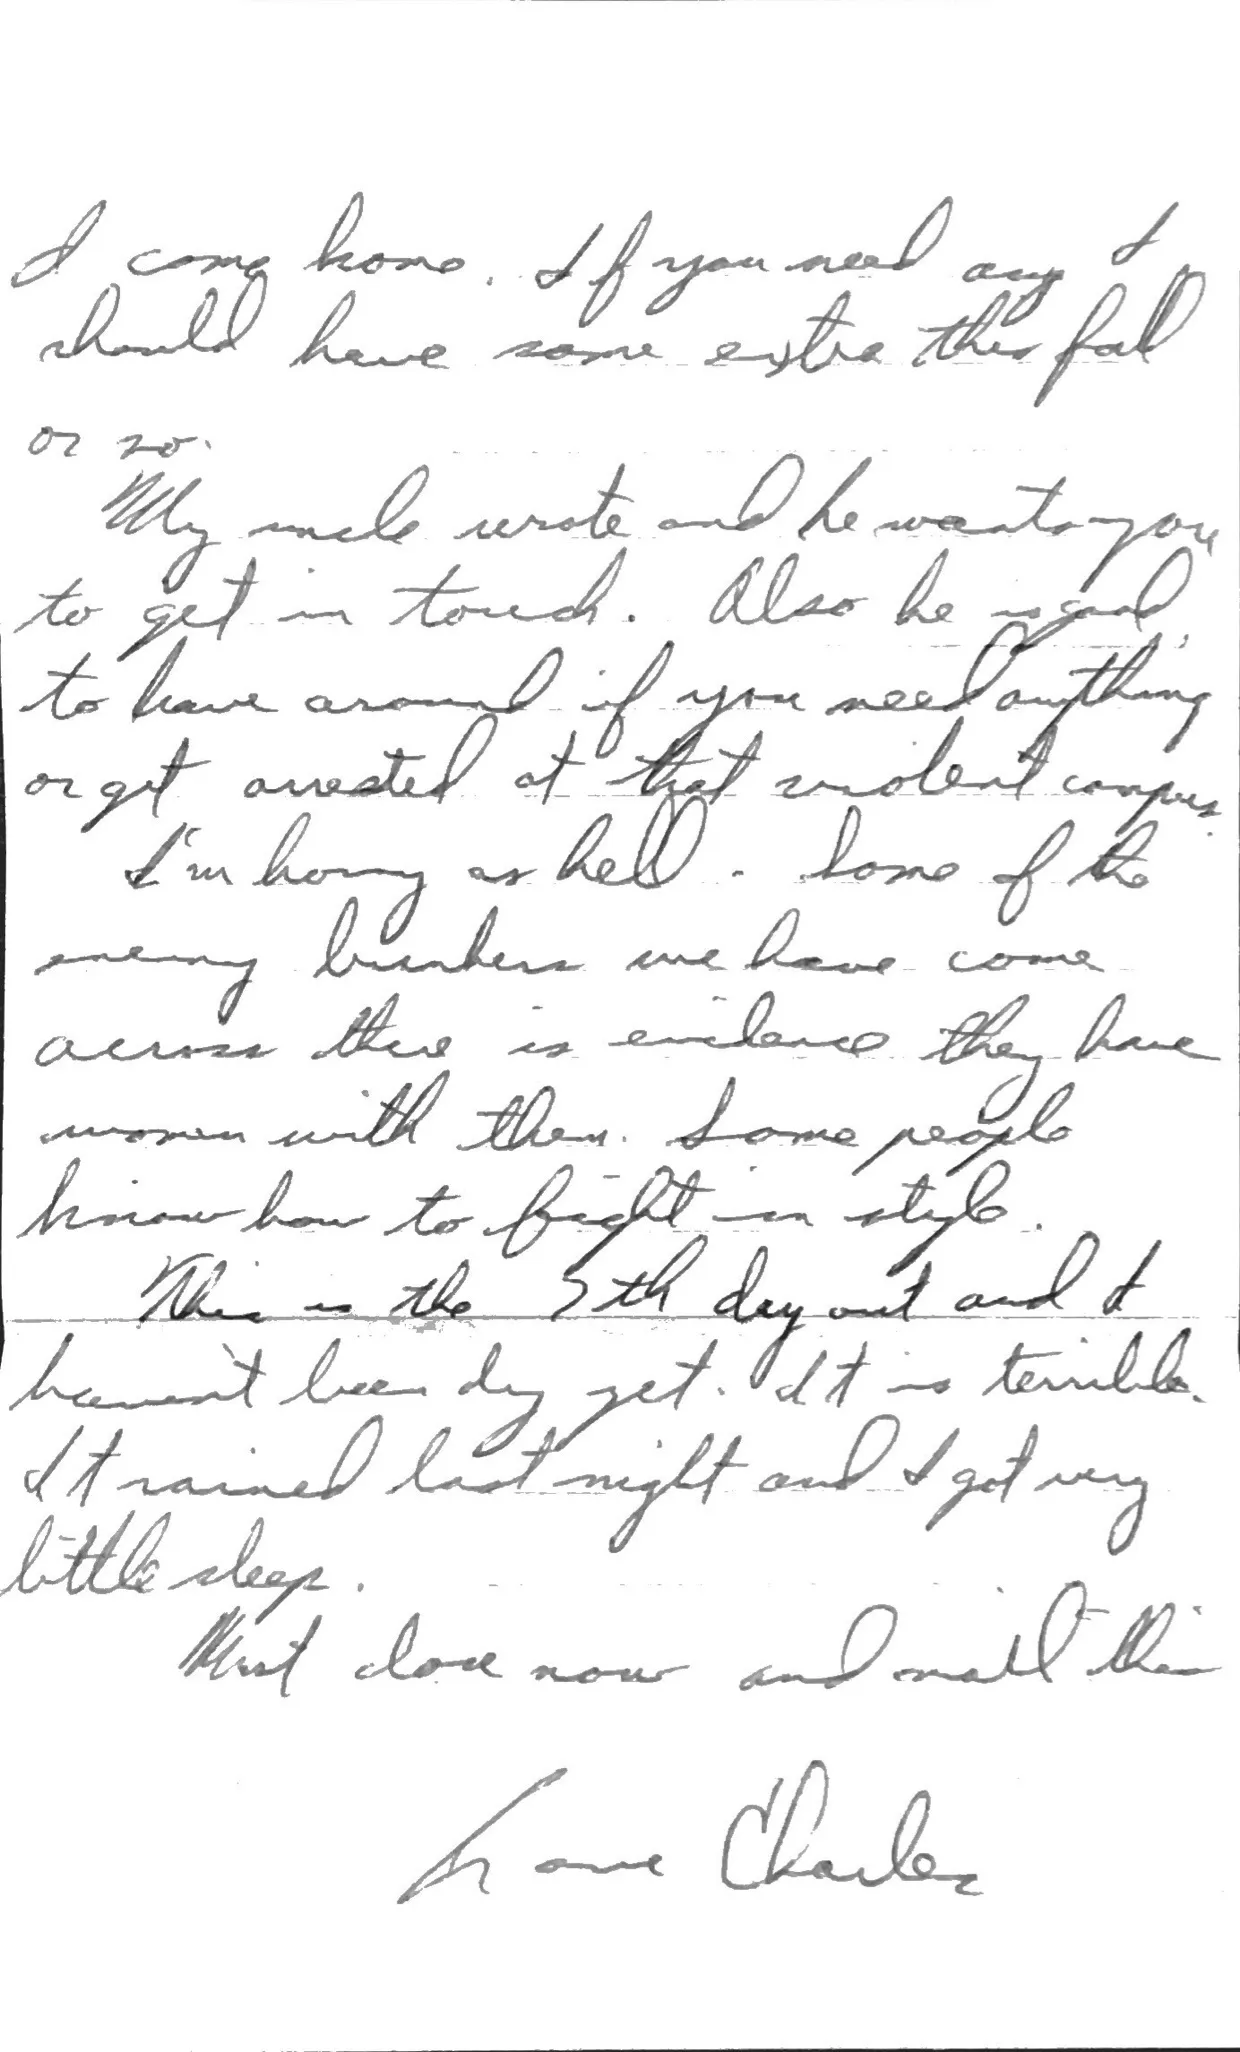 I come home. If you need any I
should have some extra this fall
or so.
My uncle wrote and he wants you
to get in touch. Also he is good
to have around if you need anything
or get arrested at that violent campus.
I'm horny as hell. Some of the
enemy bunkers we have come
across there is evidence they have
women with them. Some people
know how to fight in style.
This is the 5th day out and I
haven't been dry yet. It is terrible.
It rained last night and I got very
little sleep.
Must close now and mail this
Love Charles